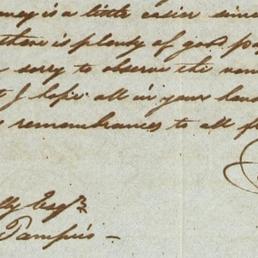 money is a little easier since
there is plenty of good pa
sorry to observe the
I hope all in your hand
remembrances to all f
lly Esqr.
Tampico —